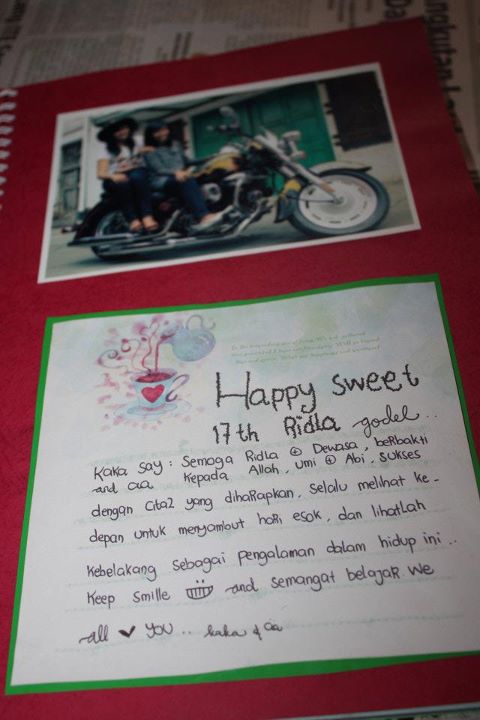 Happy sweet
17th Ridla godel..
Kaka say : Semoga Ridla ⊕ Dewasa, beRbakti
and aa. kepada Allah, umi ⊕ Abi, sukses
dengan Cita2 yang dihaRapkan, selalu melihat ke-
depan untuk menyambut haRi esok, dan lihatlah
kebelakang sebagai pengalaman dalam hidup ini..
Keep Smille and semangat belajaR. We
all ♥ you.. kaka & aa